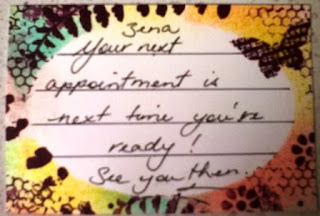 Zena
Your next
appointment is
next time you're
ready!
See you then.